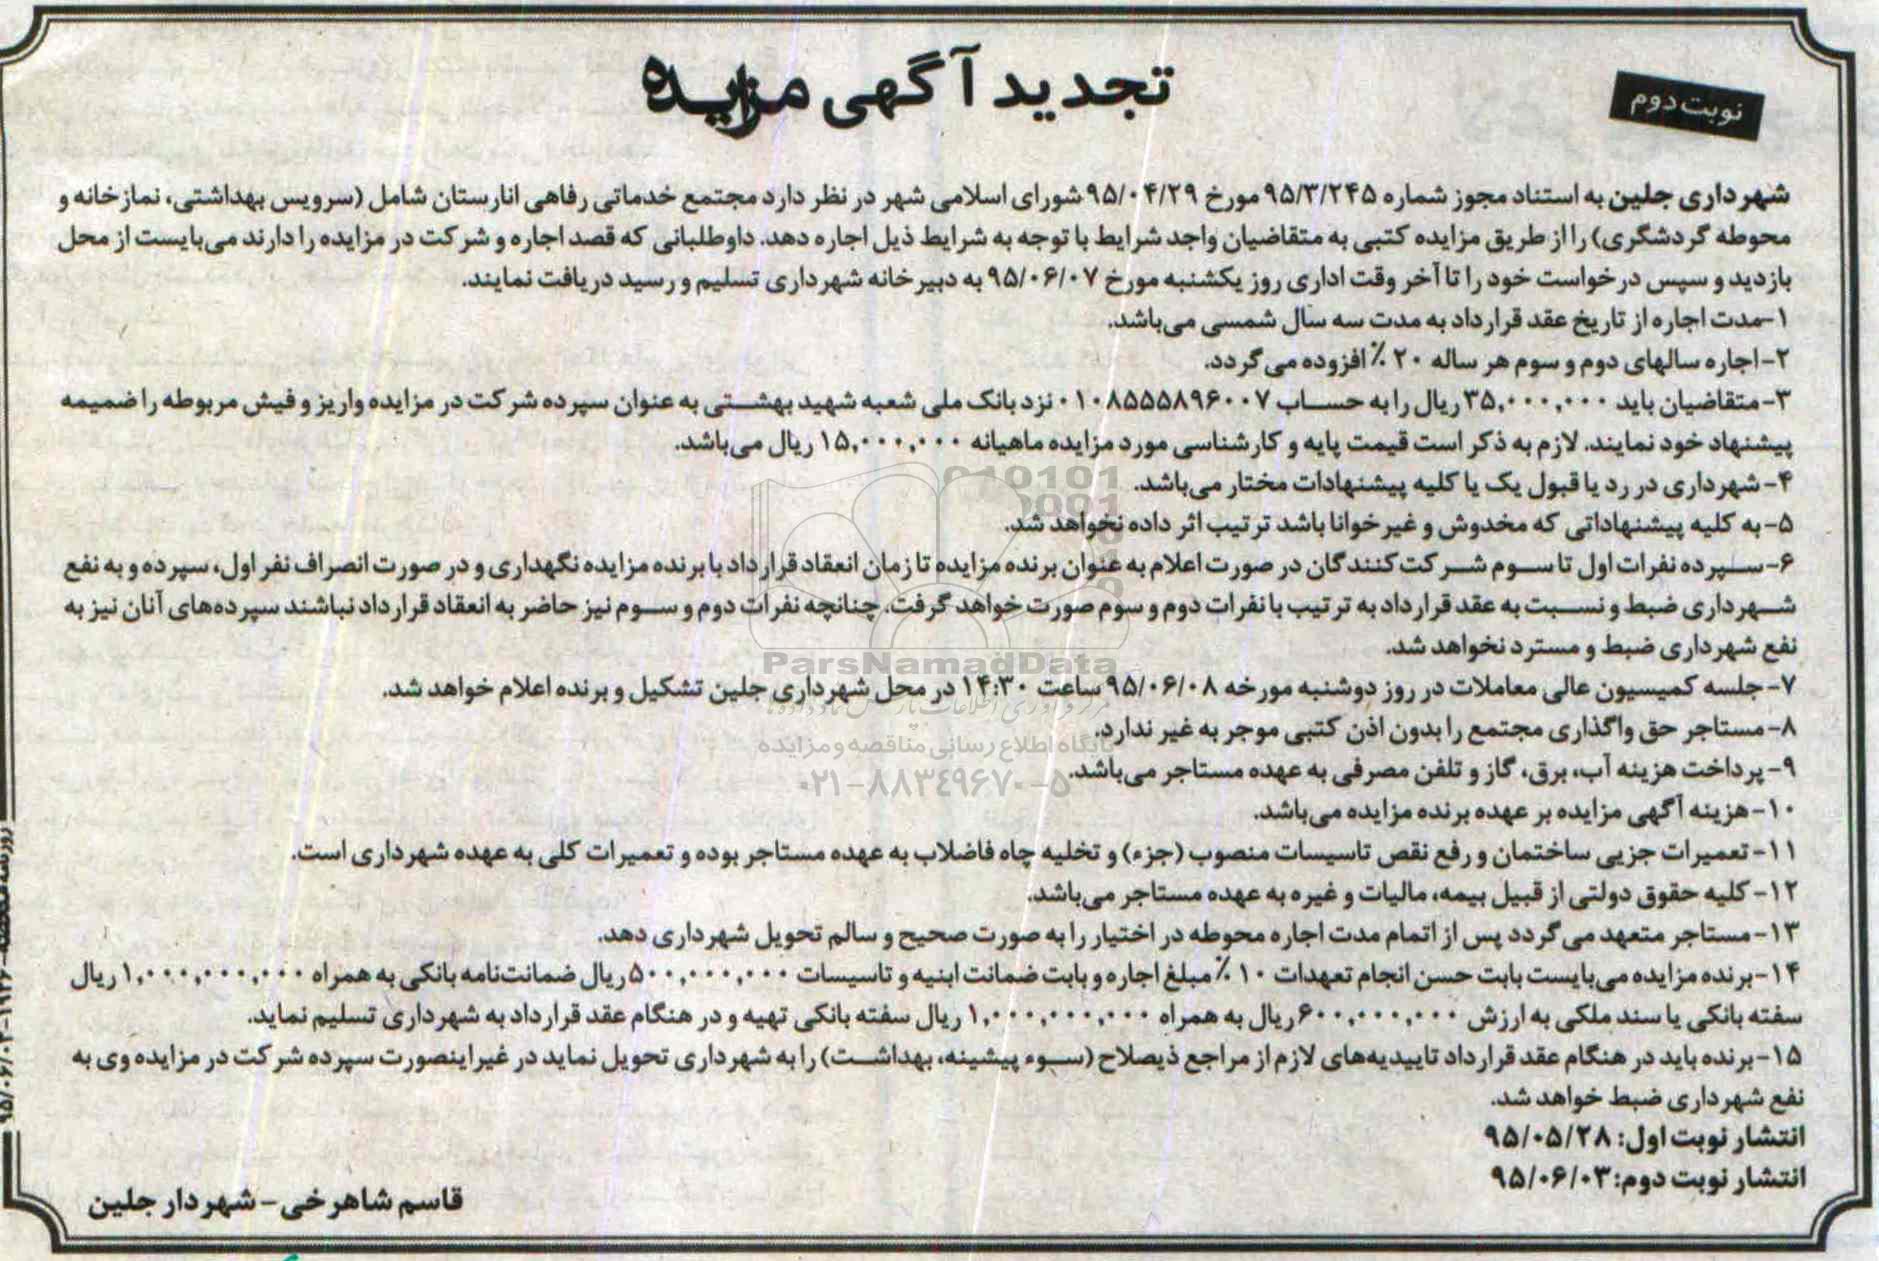 تجدید آگهی مزایده
نوبت دوم
شهرداری جلین به استناد مجوز شماره ۹۵/۳/۲۴۵ مورخ ۹۵/۰۴/۲۹ شورای اسلامی شهر در نظر دارد مجتمع خدماتی رفاهی انارستان شامل (سرویس بهداشتی، نمازخانه و
محوطه گردشگری) را از طریق مزایده کتبی به متقاضیان واجد شرایط با توجه به شرایط ذیل اجاره دهد. داوطلبانی که قصد اجاره و شرکت در مزایده را دارند می‌بایست از محل
بازدید و سپس درخواست خود را تا آخر وقت اداری روز یکشنبه مورخ ۹۵/۰۶/۰۷ به دبیرخانه شهرداری تسلیم و رسید دریافت نمایند.
۱-مدت اجاره از تاریخ عقد قرارداد به مدت سه سال شمسی می‌باشد.
۲-اجاره سالهای دوم و سوم هر ساله ۲۰٪ افزوده می‌گردد.
۳-متقاضیان باید ۳۵,۰۰۰,۰۰۰ ریال را به حساب ۰۱۰۸۵۵۵۸۹۶۰۰۷ نزد بانک ملی شعبه شهید بهشتی به عنوان سپرده شرکت در مزایده واریز و فیش مربوطه را ضمیمه
پیشنهاد خود نمایند. لازم به ذکر است قیمت پایه و کارشناسی مورد مزایده ماهیانه ۱۵,۰۰۰,۰۰۰ ریال می‌باشد.
۴- شهرداری در رد یا قبول یک یا کلیه پیشنهادات مختار می‌باشد.
۵- به کلیه پیشنهاداتی که مخدوش و غیرخوانا باشد ترتیب اثر داده نخواهد شد.
۶-سپرده نفرات اول تا سوم شرکت‌کنندگان در صورت اعلام به عنوان برنده مزایده تا زمان انعقاد قرارداد با برنده مزایده نگهداری و در صورت انصراف نفر اول، سپرده و به نفع
شهرداری ضبط و نسبت به عقد قرارداد به ترتیب با نفرات دوم و سوم صورت خواهد گرفت. چنانچه نفرات دوم و سوم نیز حاضر به انعقاد قرارداد نباشند سپرده‌های آنان نیز به
نفع شهرداری ضبط و مسترد نخواهد شد.
ParsNamadData
۷-جلسه کمیسیون عالی معاملات در روز دوشنبه مورخه ۹۵/۰۶/۰۸ ساعت ۱۴:۳۰ در محل شهرداری جلین تشکیل و برنده اعلام خواهد شد.
۸-مستاجر حق واگذاری مجتمع را بدون اذن کتبی موجر به غیر ندارد.
پایگاه اطلاع رسانی مناقصه و مزایده
۹-پرداخت هزینه آب، برق، گاز و تلفن مصرفی به عهده مستاجر می‌باشد.
۰۲۱-۸۸۳۴۹۶۷۰-۵
۱۰-هزینه آگهی مزایده بر عهده برنده مزایده می‌باشد.
۱۱- تعمیرات جزیی ساختمان و رفع نقص تاسیسات منصوب (جزء) و تخلیه چاه فاضلاب به عهده مستاجر بوده و تعمیرات کلی به عهده شهرداری است.
۱۲- کلیه حقوق دولتی از قبیل بیمه، مالیات و غیره به عهده مستاجر می‌باشد.
۱۳-مستاجر متعهد می‌گردد پس از اتمام مدت اجاره محوطه در اختیار را به صورت صحیح و سالم تحویل شهرداری دهد.
۱۴-برنده مزایده می‌بایست بابت حسن انجام تعهدات ۱۰٪ مبلغ اجاره و بابت ضمانت ابنیه و تاسیسات ۵۰۰,۰۰۰,۰۰۰ ریال ضمانت‌نامه بانکی به همراه ۱,۰۰۰,۰۰۰,۰۰۰ ریال
سفته بانکی یا سند ملکی به ارزش ۶۰۰,۰۰۰,۰۰۰ ریال به همراه ۱,۰۰۰,۰۰۰,۰۰۰ ریال سفته بانکی تهیه و در هنگام عقد قرارداد به شهرداری تسلیم نماید.
۱۵-برنده باید در هنگام عقد قرارداد تاییدیه‌های لازم از مراجع ذیصلاح (سوء پیشینه، بهداشت) را به شهرداری تحویل نماید در غیر اینصورت سپرده شرکت در مزایده وی به
نفع شهرداری ضبط خواهد شد.
انتشار نوبت اول: ۹۵/۰۵/۲۸
انتشار نوبت دوم: ۹۵/۰۶/۰۳
قاسم شاهرخی - شهردار جلین